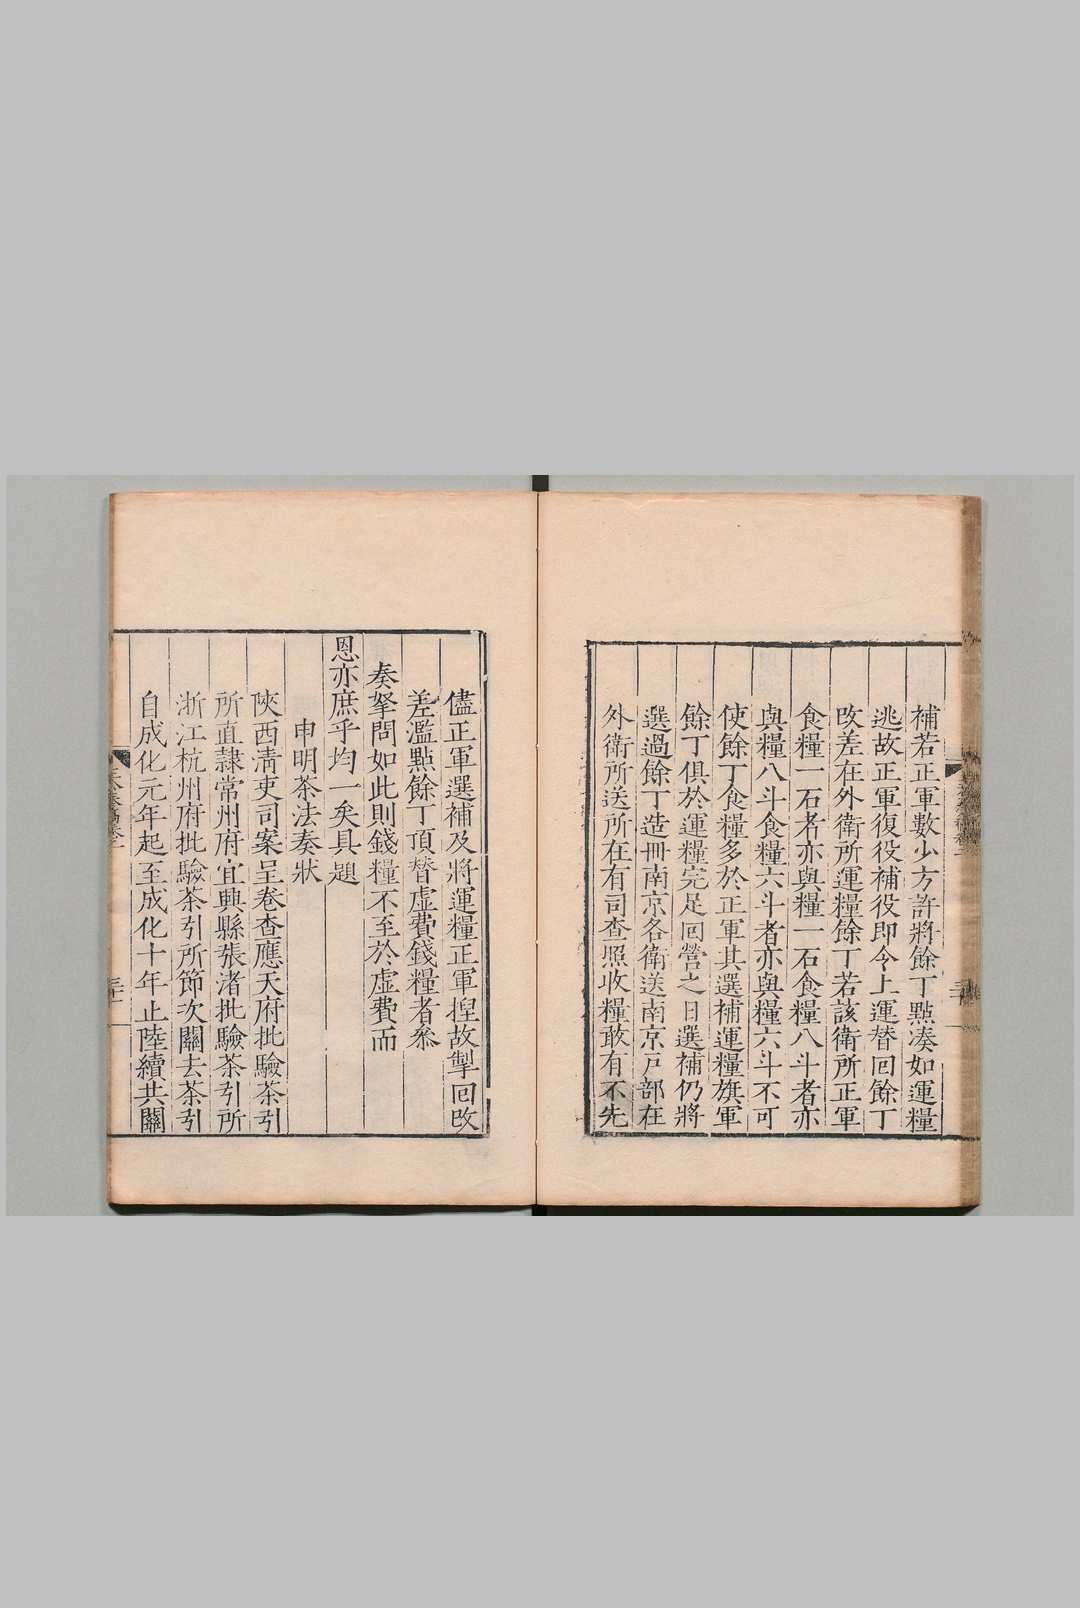 補若正軍數少方許將餘丁點湊如運糧
逃故正軍復役補役即令上運替回餘丁
改差在外衛所運糧餘丁若該衛所正軍
食糧一石者亦與糧一石食糧八斗者亦
與糧八斗食糧六斗者亦與糧六斗不可
使餘丁食糧多於正軍其選補運糧旗軍
餘丁俱於運糧完足回營之日選補仍將
選過餘丁造冊南京各衛送南京戶部在
外衛所送所在有司查照收糧敢有不先
儘正軍選補及將運糧正軍揑故掣回改
差濫點餘丁頂替虛費錢糧者叅
奏拏問如此則錢糧不至於虛費而
恩亦庶乎均一矣具題
申明茶法奏狀
陝西清吏司案呈卷查應天府批驗茶引
所直隷常州府宜興縣張渚批驗茶引所
浙江杭州府批驗茶引所節次關去茶引
自成化元年起至成化十年止陸續共關